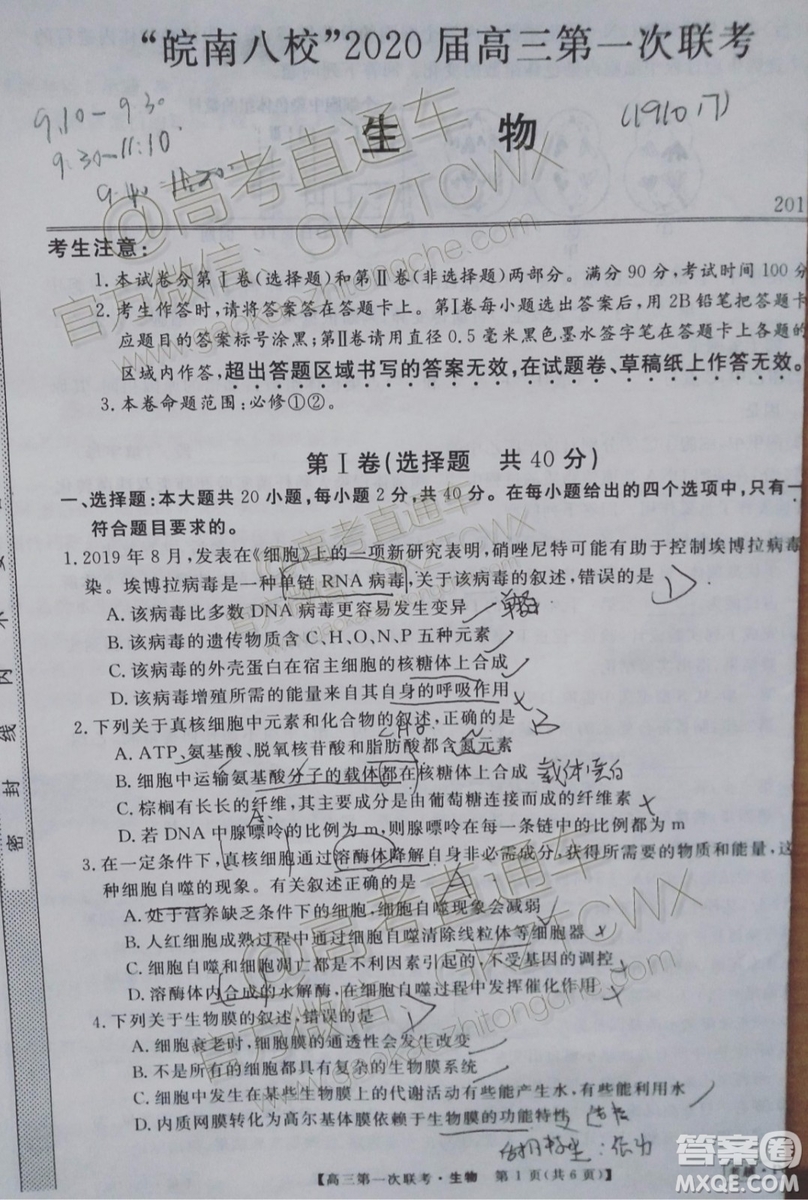 “皖南八校”2020届高三第一次联考
生 物
(191017)
9.10-9.30
9.30-11:10
9.40
201
考生注意:
1.本试卷分第Ⅰ卷(选择题)和第Ⅱ卷(非选择题)两部分。满分90分,考试时间100分
2.考生作答时,请将答案答在答题卡上。第Ⅰ卷每小题选出答案后,用2B铅笔把答题卡
应题目的答案标号涂黑;第Ⅱ卷请用直径0.5毫米黑色墨水签字笔在答题卡上各题的
区域内作答,超出答题区域书写的答案无效,在试题卷、草稿纸上作答无效。
3.本卷命题范围:必修①②。
第Ⅰ卷(选择题 共40分)
一、选择题:本大题共20小题,每小题2分,共40分。在每小题给出的四个选项中,只有一
符合题目要求的。
1.2019年8月,发表在《细胞》上的一项新研究表明,硝唑尼特可能有助于控制埃博拉病毒
染。埃博拉病毒是一种单链RNA病毒,关于该病毒的叙述,错误的是 D
A.该病毒比多数DNA病毒更容易发生变异
B.该病毒的遗传物质含C、H、O、N、P五种元素
C.该病毒的外壳蛋白在宿主细胞的核糖体上合成
D.该病毒增殖所需的能量来自其自身的呼吸作用
2.下列关于真核细胞中元素和化合物的叙述,正确的是 B
A.ATP、氨基酸、脱氧核苷酸和脂肪酸都含氮元素
B.细胞中运输氨基酸分子的载体都在核糖体上合成 载体蛋白
C.棕榈有长长的纤维,其主要成分是由葡萄糖连接而成的纤维素
D.若DNA中腺嘌呤的比例为m,则腺嘌呤在每一条链中的比例都为m
3.在一定条件下,真核细胞通过溶酶体降解自身非必需成分,获得所需的物质和能量,这
种细胞自噬的现象。有关叙述正确的是 A
A.处于营养缺乏条件下的细胞,细胞自噬现象会减弱
B.人红细胞成熟过程中通过细胞自噬清除线粒体等细胞器
C.细胞自噬和细胞凋亡都是不利因素引起的,不受基因的调控
D.溶酶体内合成的水解酶,在细胞自噬过程中发挥催化作用
4.下列关于生物膜的叙述,错误的是 D
A.细胞衰老时,细胞膜的通透性会发生改变
B.不是所有的细胞都具有复杂的生物膜系统
C.细胞中发生在某些生物膜上的代谢活动有些能产生水,有些能利用水
D.内质网膜转化为高尔基体膜依赖于生物膜的功能特性
【高三第一次联考·生物 第1页(共6页)】
密 封 线 内 不
@高考直通车
官方微信:GKZTCWX
www.gaokaozhitongche.com
@高考直通车
官方微信:GKZTCWX
www.gaokaozhitongche.com
答案圈
MXQE.COM